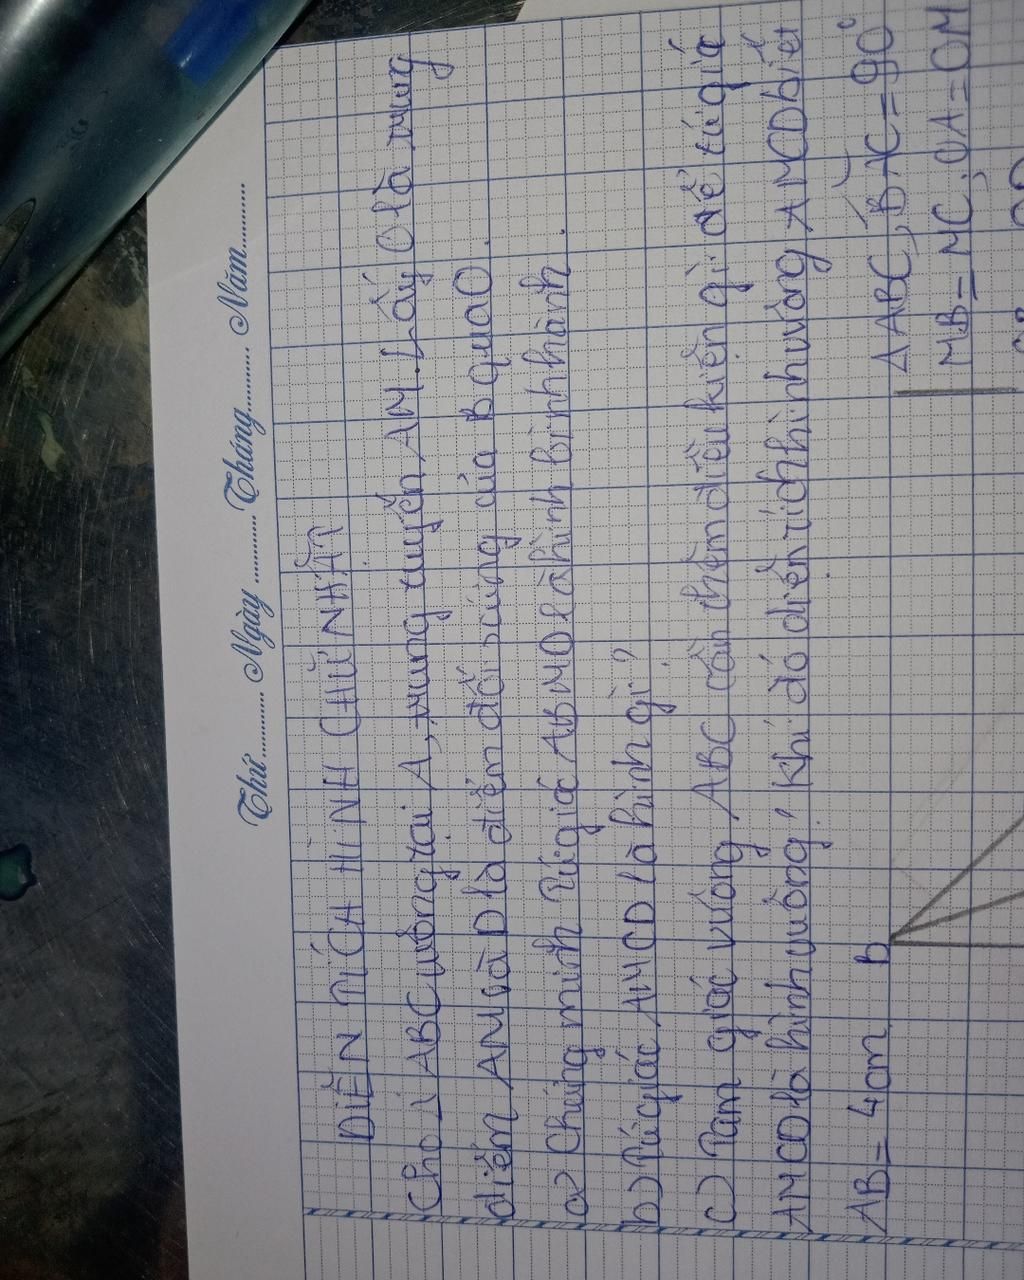 Thứ............ Ngày ............Tháng............ Năm............
DIỆN TÍCH HÌNH CHỮ NHẬT
Cho Δ ABC vuông tại A, trung tuyến AM. Lấy O là trung
điểm AM và D là điểm đối xứng của B qua O.
a) Chứng minh Tứ giác ABMD là hình bình hành.
b) Tứ giác AMCD là hình gì?
c) Tam giác vuông ABC cần thêm điều kiện gì để tứ giác
AMCD là hình vuông? Khi đó diện tích hình vuông AMCD biết
AB = 4cm
B
Δ ABC, BAC = 90°
MB = MC, OA = OM